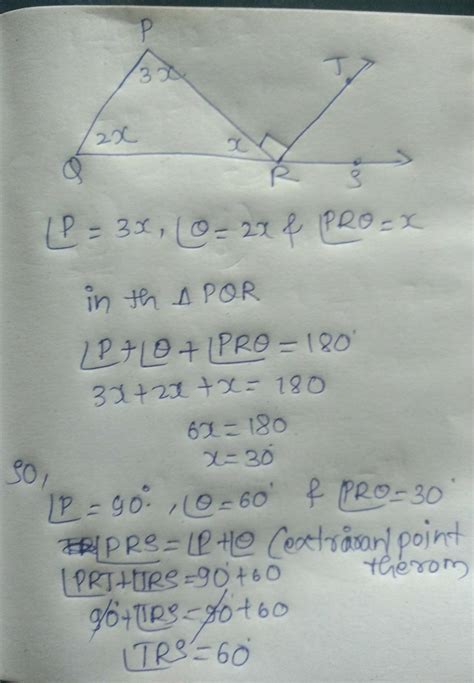 P
3x
T
2x
x
Q
R
S
∠P = 3x, ∠Q = 2x & ∠PRQ = x
in th △PQR
∠P + ∠Q + ∠PRQ = 180°
3x + 2x + x = 180
6x = 180
x = 30°
so,
∠P = 90°, ∠Q = 60° & ∠PRQ = 30°
∠PRS = ∠P + ∠Q (
point
therom)
∠PRT + ∠TRS = 90° + 60
90° + ∠TRS = 90° + 60
∠TRS = 60°